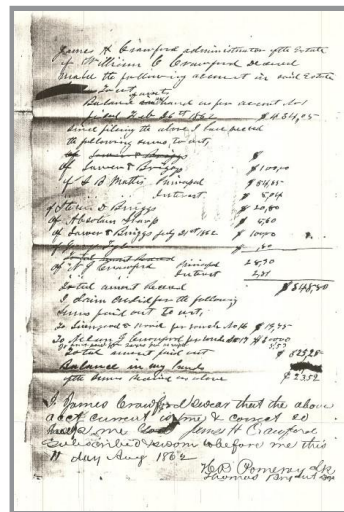 James H Crawford administrator of the Estate
of William C Crawford Deceased
makes the following account in said Estate
To wit,
Balance on hand as per account
filed Feb 26st 1862 $454,05
Since filing the above I have received
the following sums to wit,
of Sawer & Briggs $
of Sawer & Briggs $100,00
of S B Mattis Principal $84,25
" " " Interest $ 5,04
of Steven D Briggs $20,80
of Absolam Hoop $ 6,60
of Sawer & Briggs July 21st 1862 $ 100,00
of $ ,80
of Crawford principal 28,90
Interest 2,21
Total amount Received $848,80
I claim credit for the following
Sums paid out to wit.
To voucher No 16 $ 19,75
To Nelson G Crawford per voucher No 17 $
Total amount paid out $ 825,28
Balance in my hands
of the sums Received as above $ 23,52
I James Crawford swear that the above
acct current is true & correct so
help me God James H Crawford
Subscribed & sworn to before me this
11 day Aug 1862
H B Pomeroy Clk
Thomas Bryant Dep